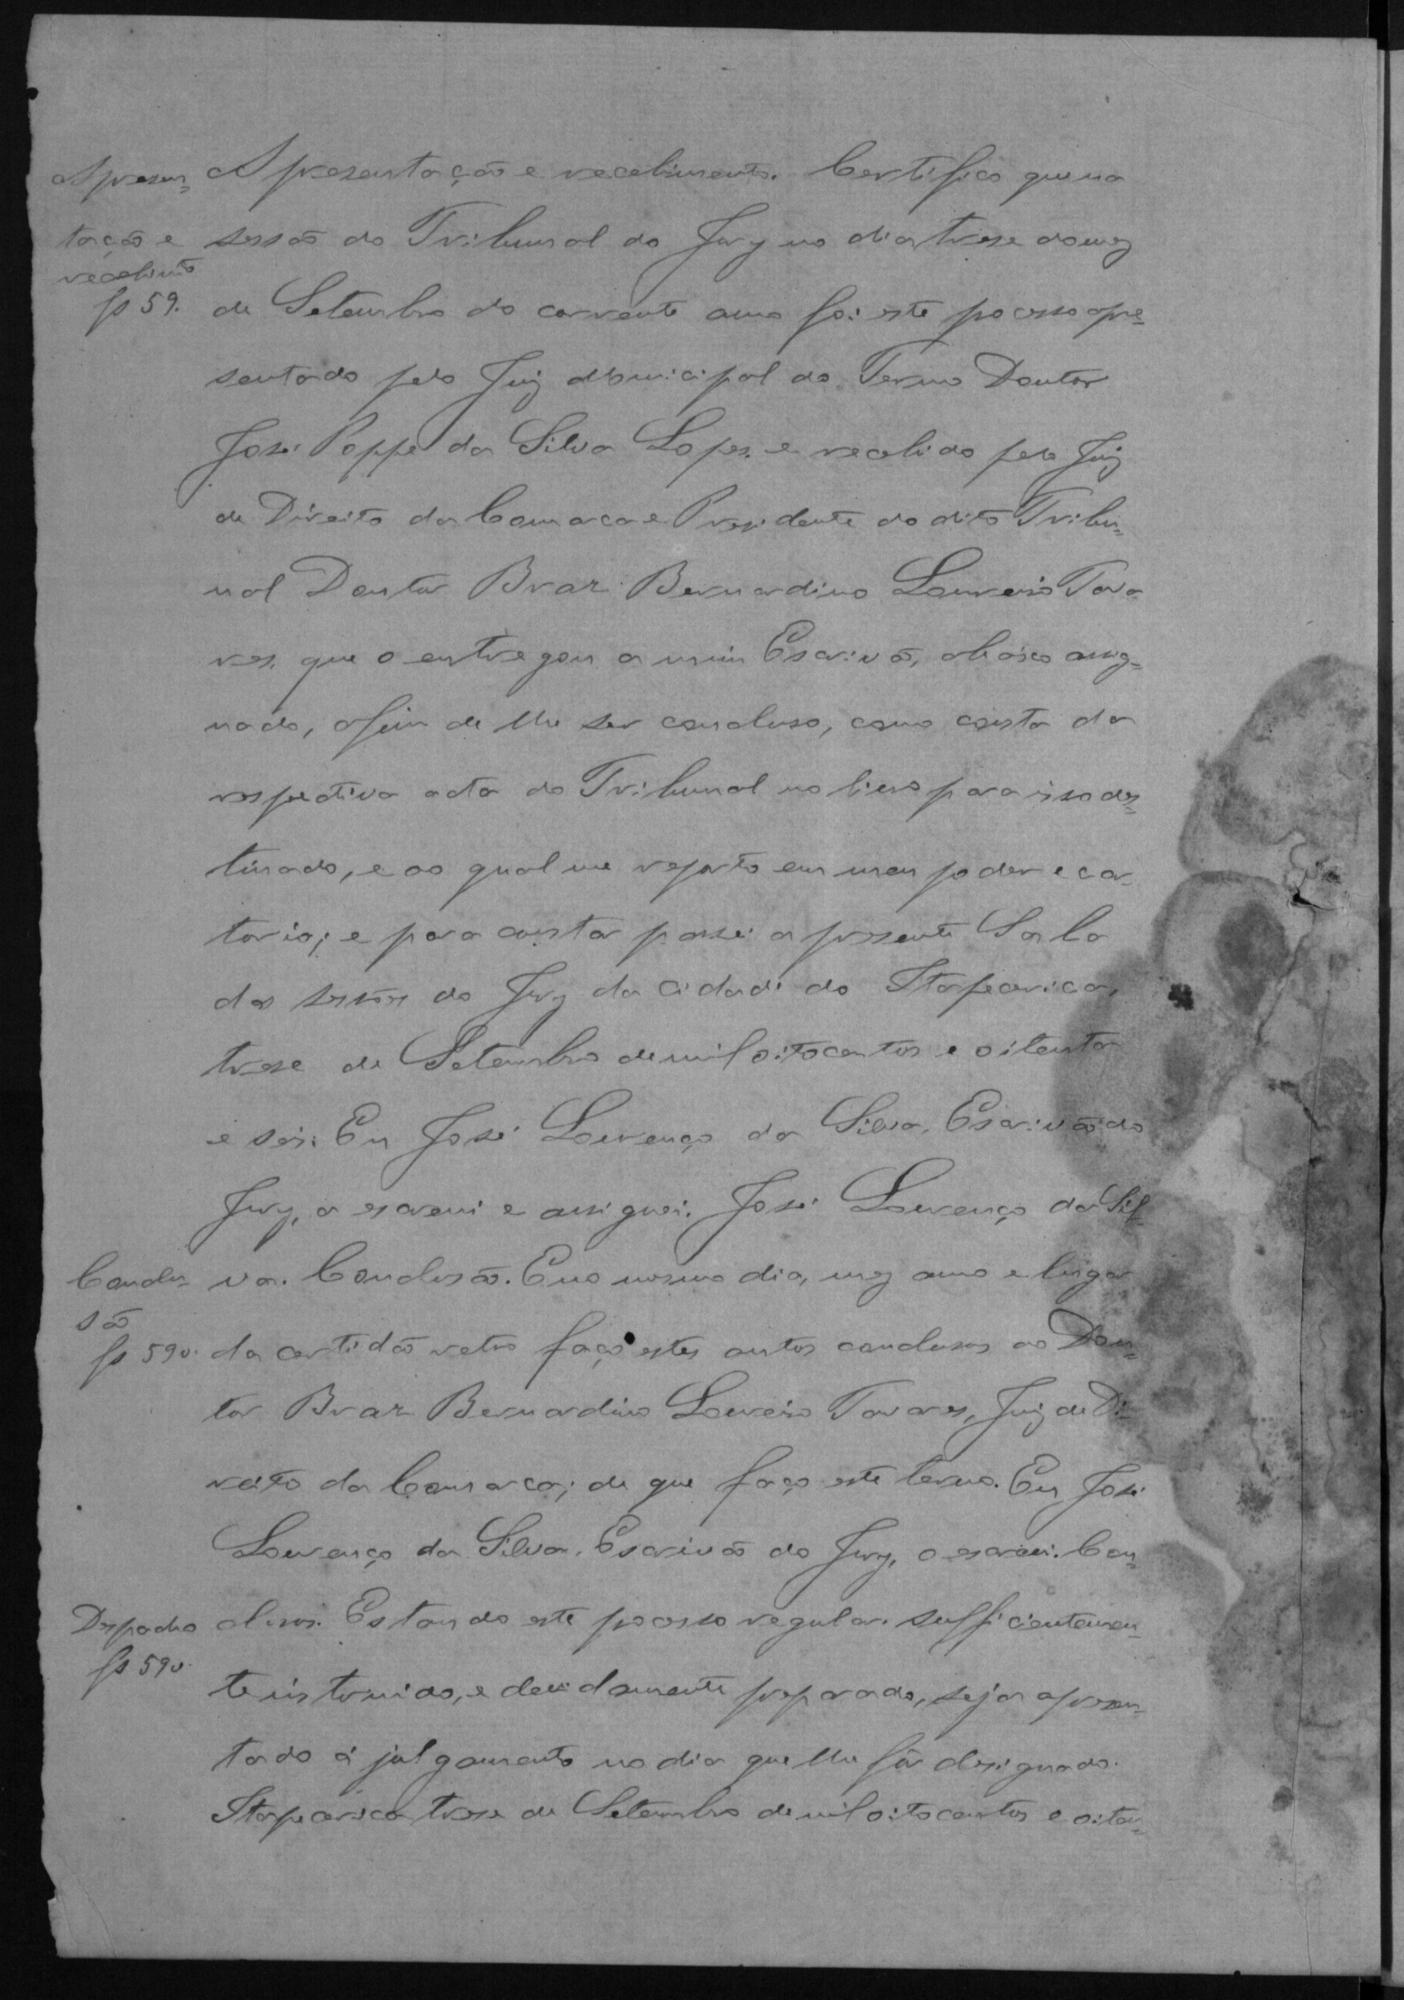 Apresen- Apresentação e recebimento. Certifico que na
tação e sessão do Tribunal do Jury no dia trese do mez
recebimto
fs 59. de Setembro do corrente anno foi este pocesso apre-
sentado pelo Juiz Municipal do Termo Doutor
José Poppe da Silva Lopes. e recebido pelo Juiz
de Direito da Comarca e Presidente do dito Tribu-
nal Doutor Braz Bernardino Loureiro Tava
res. que o entregou a mim Escrivão, abaixo assig-
nado, afim de lhe ser concluso, como consta da
respectiva acta do Tribunal no livro para isso des-
tinado, e ao qual me reporto em meu poder e car-
torio; e para constar passei a presente Sala
das sessões do Jury da Cidade do Itaparica,
trese de Setembro de mil oitocentos e oitenta
e seis. Eu José Lourenço da Silva, Escrivão do
Jury, a escrevi e assignei. José Lourenço da Sil-
Conclu- va. Conclusão. E no mesmo dia, mez anno e lugar
são
fs 59v. da certidão retro faço estes autos conclusos ao Dou-
tor Braz Bernardino Loureiro Tavares, Juiz de Di-
reito da Comarca; de que faço este termo. Eu José
Lourenço da Silva. Escrivão do Jury, o escrevi. Con-
Despacho clusos. Estando este pocesso regular. sufficientemen-
fs 59v.
te instruido, e devidamente preparado, seja apresen-
tado á julgamento no dia que lhe fôr designado.
Itaparica trese de Setembro de mil oitocentos e oiten-